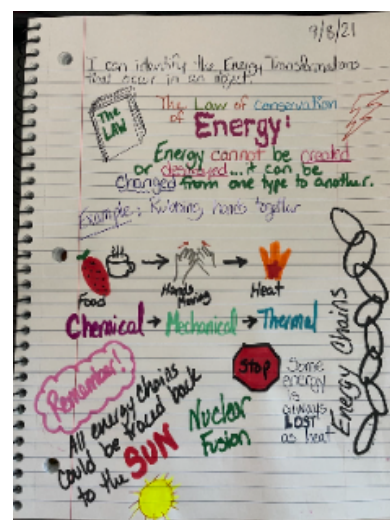 9/8/21
I can identify the Energy Transformations
that occur in an object.
THE
LAW
The Law of Conservation
of Energy:
Energy cannot be created
or destroyed...it can be
changed from one type to another.
Example: Rubbing hands together
Food
Hands
Moving
Heat
Chemical → Mechanical → Thermal
Remember!
All energy chains
could be traced back
to the SUN
Nuclear
Fusion
STOP
Some
energy
is
always
LOST
as heat
Energy Chains